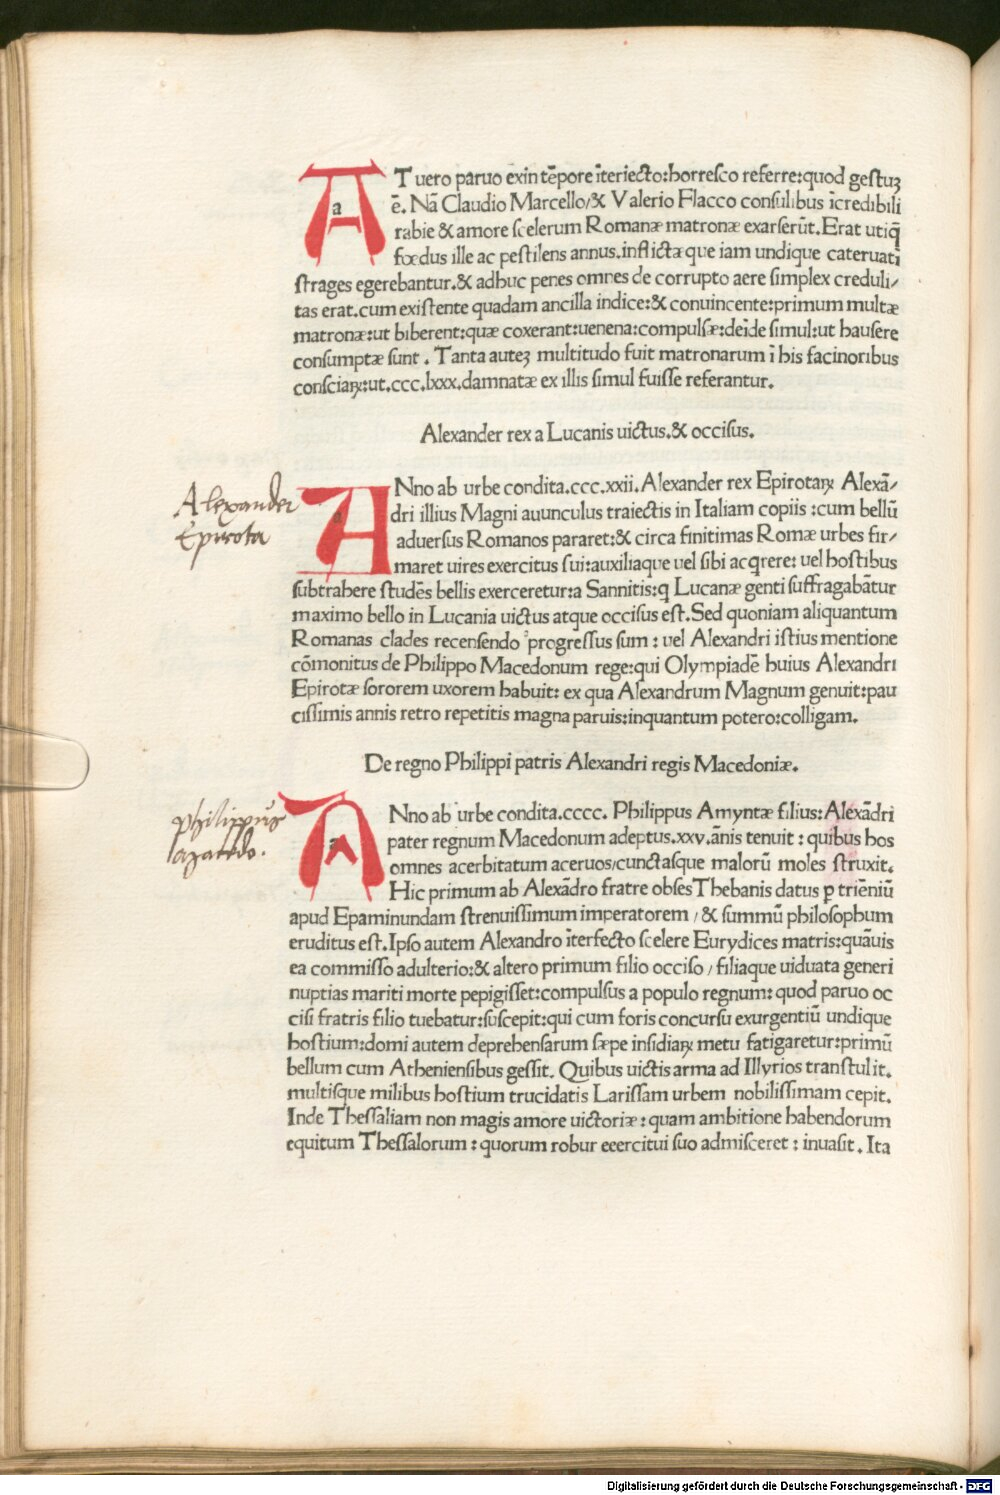 AT uero paruo exin tēpore īteriecto:horresco referre:quod gestuꝫ
ē. Nā Claudio Marcello/& Valerio Flacco consulibus īcredibili
rabie & amore scelerum Romanæ matronæ exarserūt. Erat utiq̄
fœdus ille ac pestilens annus.inflictæque iam undique cateruatī
strages egerebantur.& adhuc penes omnes de corrupto aere simplex creduli/
tas erat.cum existente quadam ancilla indice:& conuincente:primum multæ
matronæ:ut biberent:quæ coxerant:uenena:compulsæ:deīde simul:ut hausere
consumptæ sunt. Tanta auteꝫ multitudo fuit matronarum ī his facinoribus
consciaꝝ:ut.ccc.lxxx.damnatæ ex illis simul fuisse referantur.
Alexander rex a Lucanis uictus.& occisus.
Alexander
Epirota
ANno ab urbe condita.ccc.xxii. Alexander rex Epirotaꝝ Alexā/
dri illius Magni auunculus traiectis in Italiam copiis :cum bellū
aduersus Romanos pararet:& circa finitimas Romæ urbes fir/
maret uires exercitus sui:auxiliaque uel sibi acqrere: uel hostibus
subtrahere studēs bellis exerceretur:a Sannitis:q Lucanæ genti suffragabātur
maximo bello in Lucania uictus atque occisus est. Sed quoniam aliquantum
Romanas clades recensendo ꝓgressus sum : uel Alexandri istius mentione
cōmonitus de Philippo Macedonum rege:qui Olympiadē huius Alexandri
Epirotæ sororem uxorem habuit: ex qua Alexandrum Magnum genuit:pau
cissimis annis retro repetitis magna paruis:inquantum potero:colligam.
De regno Philippi patris Alexandri regis Macedoniæ.
philippus
macedo.
ANno ab urbe condita.cccc. Philippus Amyntæ filius: Alexādri
pater regnum Macedonum adeptus.xxv.ānis tenuit : quibus hos
omnes acerbitatum aceruos/cunctasque malorū moles struxit.
Hic primum ab Alexādro fratre obses Thebanis datus ꝑ triēniū
apud Epaminundam strenuissimum imperatorem/& summū philosophum
eruditus est. Ipso autem Alexandro īterfecto scelere Eurydices matris:quāuis
ea commisso adulterio:& altero primum filio occiso/filiaque uiduata generi
nuptias mariti morte pepigisset:compulsus a populo regnum: quod paruo oc
cisi fratris filio tuebatur:suscepit:qui cum foris concursu exurgentiū undique
hostium:domi autem deprehensarum sæpe insidiaꝝ metu fatigaretur:primū
bellum cum Atheniensibus gessit. Quibus uictis arma ad Illyrios transtulit.
multisque milibus hostium trucidatis Larissam urbem nobilissimam cepit.
Inde Thessaliam non magis amore uictoriæ: quam ambitione habendorum
equitum Thessalorum : quorum robur eeercitui suo admisceret : inuasit. Ita
Digitalisierung gefördert durch die Deutsche Forschungsgemeinschaft - DFG